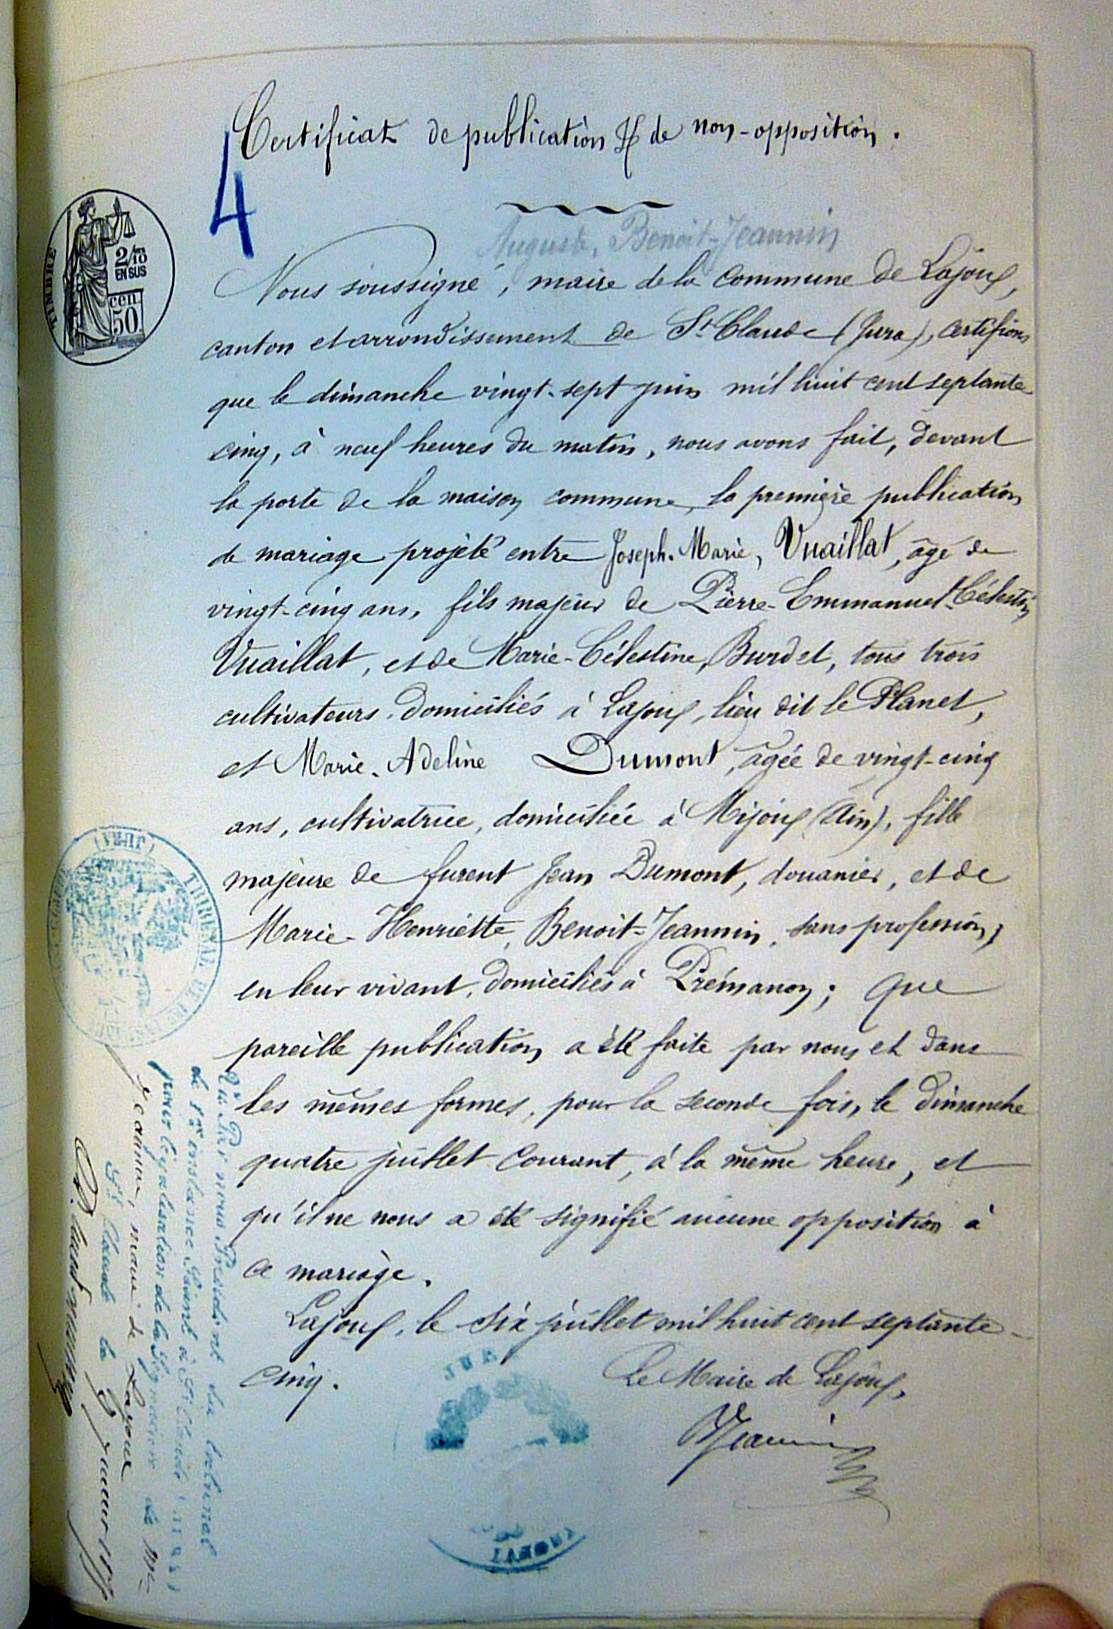 Certificat de publication & de non-opposition.
4
TIMBRE
2/10
EN SUS
50 cen
Auguste, Benoit-Jeannin
Nous soussigné, maire de la commune de Lajoux,
canton et arrondissement de St Claude (Jura), certifions
que le dimanche vingt-sept juin mil huit cent septante
cinq, à neuf heures du matin, nous avons fait, devant
la porte de la maison commune, la première publication
de mariage projeté entre Joseph-Marie, Vuaillat, âgé de
vingt-cinq ans, fils majeur de Pierre-Emmanuel-Célestin
Vuaillat, et de Marie-Célestine, Burdet, tous trois
cultivateurs, domiciliés à Lajoux, lieu dit le Planet,
et Marie-Adeline Dumont, âgée de vingt-cinq
ans, cultivatrice, domiciliée à Mijoux (Ain), fille
majeure de furent Jean Dumont, douanier, et de
Marie-Henriette, Benoit-Jeannin, sans profession,
en leur vivant, domiciliés à Prémanon; que
pareille publication a été faite par nous et dans
les mêmes formes, pour la seconde fois, le dimanche
quatre juillet courant, à la même heure, et
qu'il ne nous a été signifié aucune opposition à
ce mariage.
Lajoux, le six juillet mil huit cent septante-
cinq.
Le Maire de Lajoux,
BJeannin
JURA
TRIBUNAL DE
(JURA)
Vu Par nous Président du tribunal
de 1re instance Séant à St Claude (Jura)
pour légalisation de la Signature de Mr
Jeannin, maire de Lajoux
St Claude le